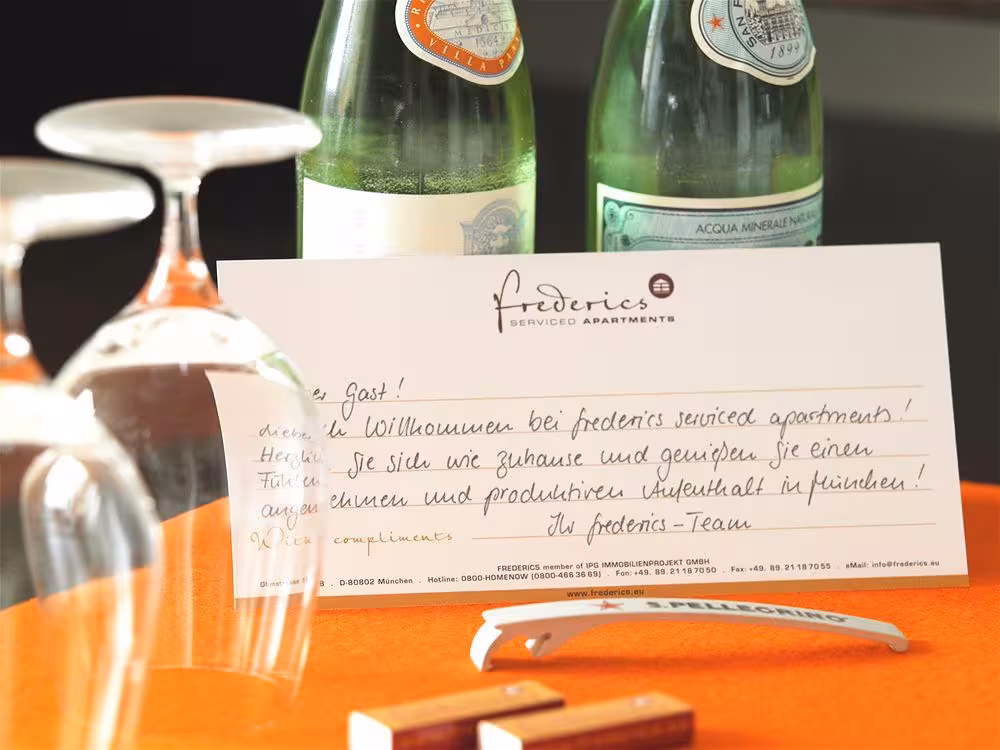 VILLA PA
MEDICI
1564
SAN P
1899
ACQUA MINERALE NATURA
frederics
SERVICED APARTMENTS
Lieber Gast!
Herzlich Willkommen bei frederics serviced apartments!
Fühlen Sie sich wie zuhause und genießen Sie einen
angenehmen und produktiven Aufenthalt in München!
Ihr frederics-Team
With compliments
FREDERICS member of IPG IMMOBILIENPROJEKT GMBH
Ohmstrasse 8 . D-80802 München . Hotline: 0800-HOMENOW (0800-4663669) . Fon: +49. 89. 21187050 . Fax: +49. 89. 21187055 . eMail: info@frederics.eu
www.frederics.eu
S.PELLEGRINO